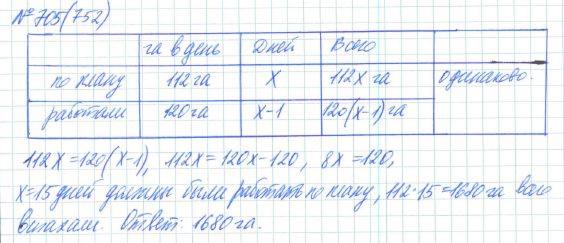 № 705(752)
га в день Дней Всего
по плану 112 га X 112X га одинаково.
работали 120 га X-1 120(X-1) га
112X = 120(X-1), 112X = 120X-120, 8X = 120,
X = 15 дней должны были работать по плану, 112·15 = 1680 га всего
вспахали. Ответ: 1680 га.